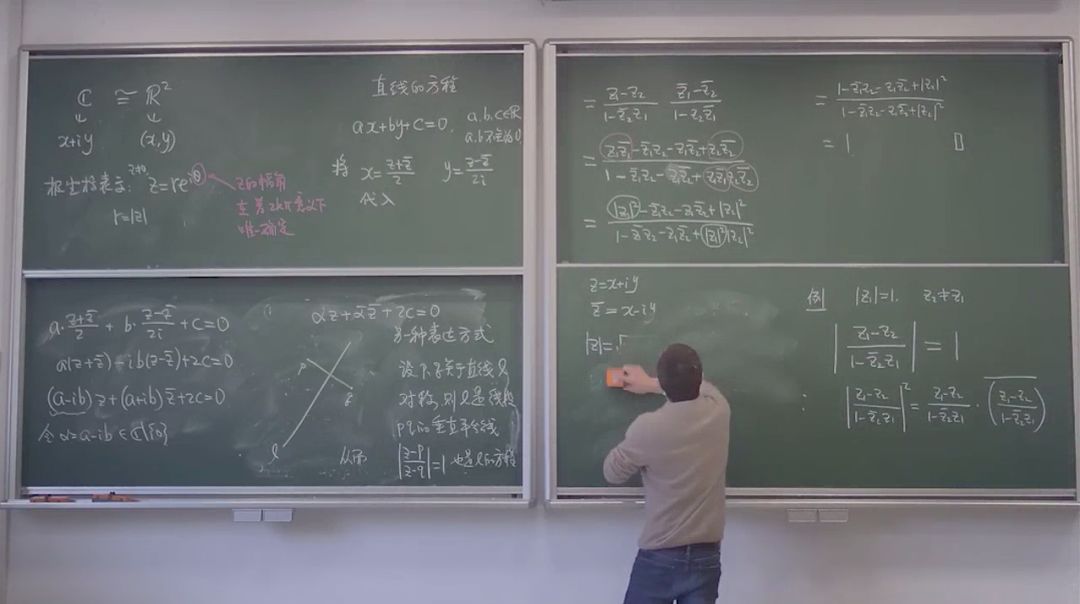 ℂ ≅ ℝ²
x+iy (x,y)
极坐标表示: z≠0 z=re^{iθ}
z的幅角
在差2kπ意义下
唯一确定
r=|z|
直线的方程
ax+by+c=0, a,b,c∈ℝ
a,b不全为0
将 x=\frac{z+\bar{z}}{2} y=\frac{z-\bar{z}}{2i}
代入
a·\frac{z+\bar{z}}{2} + b·\frac{z-\bar{z}}{2i} + c=0
a(z+\bar{z})-ib(z-\bar{z})+2c=0
(a-ib)z+(a+ib)\bar{z}+2c=0
令 α=a-ib∈ℂ\{0}
αz+\bar{α}\bar{z}+2c=0
另一种表达方式
p
q
l
设p,q关于直线l
对称,则l是线段
pq的垂直平分线
从而 |\frac{z-p}{z-q}|=1 也是l的方程
=\frac{z_1-z_2}{1-\bar{z}_2z_1} \frac{\bar{z}_1-\bar{z}_2}{1-z_2\bar{z}_1}
=\frac{z_1\bar{z}_1-\bar{z}_1z_2-z_1\bar{z}_2+z_2\bar{z}_2}{1-\bar{z}_1z_2-z_1\bar{z}_2+z_1\bar{z}_1z_2\bar{z}_2}
=\frac{|z_1|^2-\bar{z}_1z_2-z_1\bar{z}_2+|z_2|^2}{1-\bar{z}_1z_2-z_1\bar{z}_2+|z_1|^2|z_2|^2}
=\frac{1-\bar{z}_1z_2-z_1\bar{z}_2+|z_2|^2}{1-\bar{z}_1z_2-z_1\bar{z}_2+|z_2|^2}
=1 □
z=x+iy
\bar{z}=x-iy
|z|=√
例 |z_1|=1. z_2≠z_1
|\frac{z_1-z_2}{1-\bar{z}_2z_1}|=1
: |\frac{z_1-z_2}{1-\bar{z}_2z_1}|^2=\frac{z_1-z_2}{1-\bar{z}_2z_1}·\overline{(\frac{z_1-z_2}{1-\bar{z}_2z_1})}